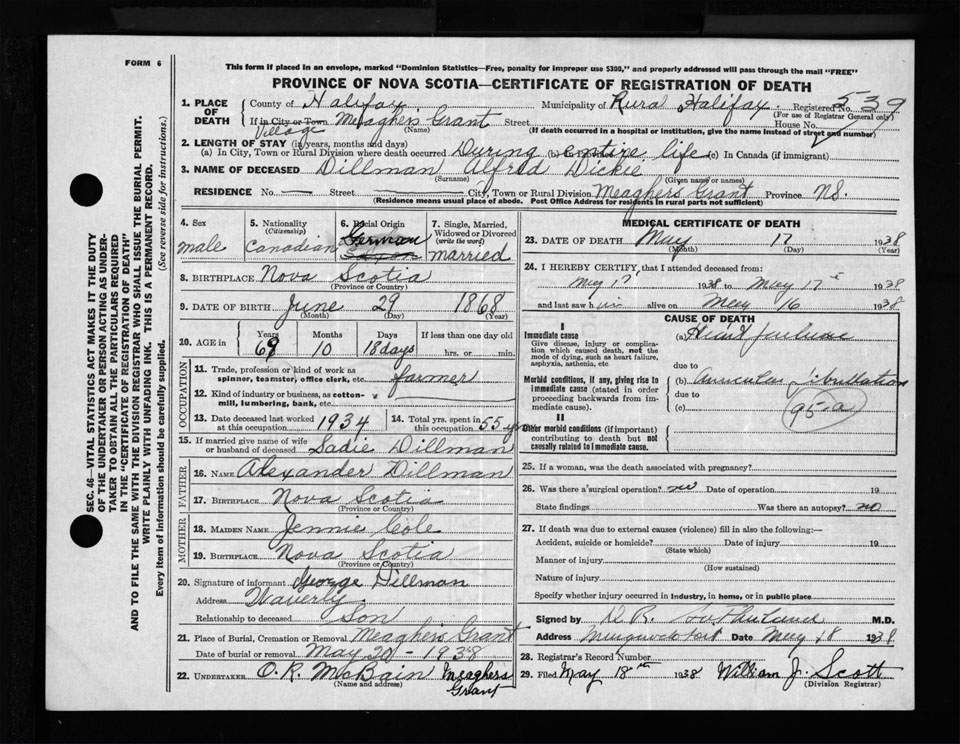 FORM 6
This form if placed in an envelope, marked "Dominion Statistics—Free, penalty for improper use $300," and properly addressed will pass through the mail "FREE"
PROVINCE OF NOVA SCOTIA—CERTIFICATE OF REGISTRATION OF DEATH
1. PLACE OF DEATH { County of Halifax Municipality of Rural Halifax Registered No. 539
(For use of Registrar General only)
If in City or Town Village Meaghers Grant Street House No.
(Name) (If death occurred in a hospital or institution, give the name instead of street and number)
2. LENGTH OF STAY (in years, months and days)
(a) In City, Town or Rural Division where death occurred During (b) entire life (c) In Canada (if immigrant)
3. NAME OF DECEASED Dillman Alfred Dickie
(Surname) (Given name or names)
RESIDENCE No. — Street — City, Town or Rural Division Meaghers Grant Province N.S.
(Residence means usual place of abode. Post Office Address for residents in rural parts not sufficient)
4. Sex male
5. Nationality (Citizenship) Canadian
6. Racial Origin German Saxon
7. Single, Married, Widowed or Divorced (write the word) married
8. BIRTHPLACE Nova Scotia
(Province or Country)
9. DATE OF BIRTH June 29 1868
(Month) (Day) (Year)
10. AGE in { Years 69 Months 10 Days 18 days If less than one day old hrs. or min.
OCCUPATION
11. Trade, profession or kind of work as spinner, teamster, office clerk, etc. farmer
12. Kind of industry or business, as cotton-mill, lumbering, bank, etc. "
13. Date deceased last worked at this occupation 1934
14. Total yrs. spent in this occupation 55 yrs
15. If married give name of wife or husband of deceased Sadie Dillman
FATHER
16. NAME Alexander Dillman
17. BIRTHPLACE Nova Scotia
(Province or Country)
MOTHER
18. MAIDEN NAME Jennie Cole
19. BIRTHPLACE Nova Scotia
(Province or Country)
20. Signature of informant George Dillman
Address Waverly
Relationship to deceased Son
21. Place of Burial, Cremation or Removal Meaghers Grant
Date of burial or removal May 20 - 1938
22. UNDERTAKER O. R. McBain Meaghers Grant
(Name and address)
MEDICAL CERTIFICATE OF DEATH
23. DATE OF DEATH May 17 1938
(Month) (Day) (Year)
24. I HEREBY CERTIFY, that I attended deceased from:
May 17 1938 to May 17 1938
and last saw him alive on May 16 1938
CAUSE OF DEATH
I
Immediate cause
Give disease, injury or complication which caused death, not the mode of dying, such as heart failure, asphyxia, asthenia, etc
(a) Heart failure
due to
Morbid conditions, if any, giving rise to immediate cause (stated in order proceeding backwards from immediate cause).
(b) Auricular Fibrillation
due to
(c) 95a
II
Other morbid conditions (if important) contributing to death but not causally related to immediate cause.
25. If a woman, was the death associated with pregnancy?
26. Was there a surgical operation? no Date of operation 19
State findings Was there an autopsy? no
27. If death was due to external causes (violence) fill in also the following:—
Accident, suicide or homicide? Date of injury 19
(State which)
Manner of injury
(How sustained)
Nature of injury
Specify whether injury occurred in industry, in home, or in public place
Signed by D. R. Sutherland M.D.
Address Date May 18 1938
28. Registrar's Record Number
29. Filed May 18th 1938 William J. Scott
(Division Registrar)
SEC. 46—VITAL STATISTICS ACT MAKES IT THE DUTY
OF THE UNDERTAKER OR PERSON ACTING AS UNDER-
TAKER TO OBTAIN ALL THE PARTICULARS REQUIRED
IN THE "CERTIFICATE OF REGISTRATION OF DEATH"
AND TO FILE THE SAME WITH THE DIVISION REGISTRAR WHO SHALL ISSUE THE BURIAL PERMIT.
WRITE PLAINLY WITH UNFADING INK. THIS IS A PERMANENT RECORD.
Every item of information should be carefully supplied. (See reverse side for instructions.)